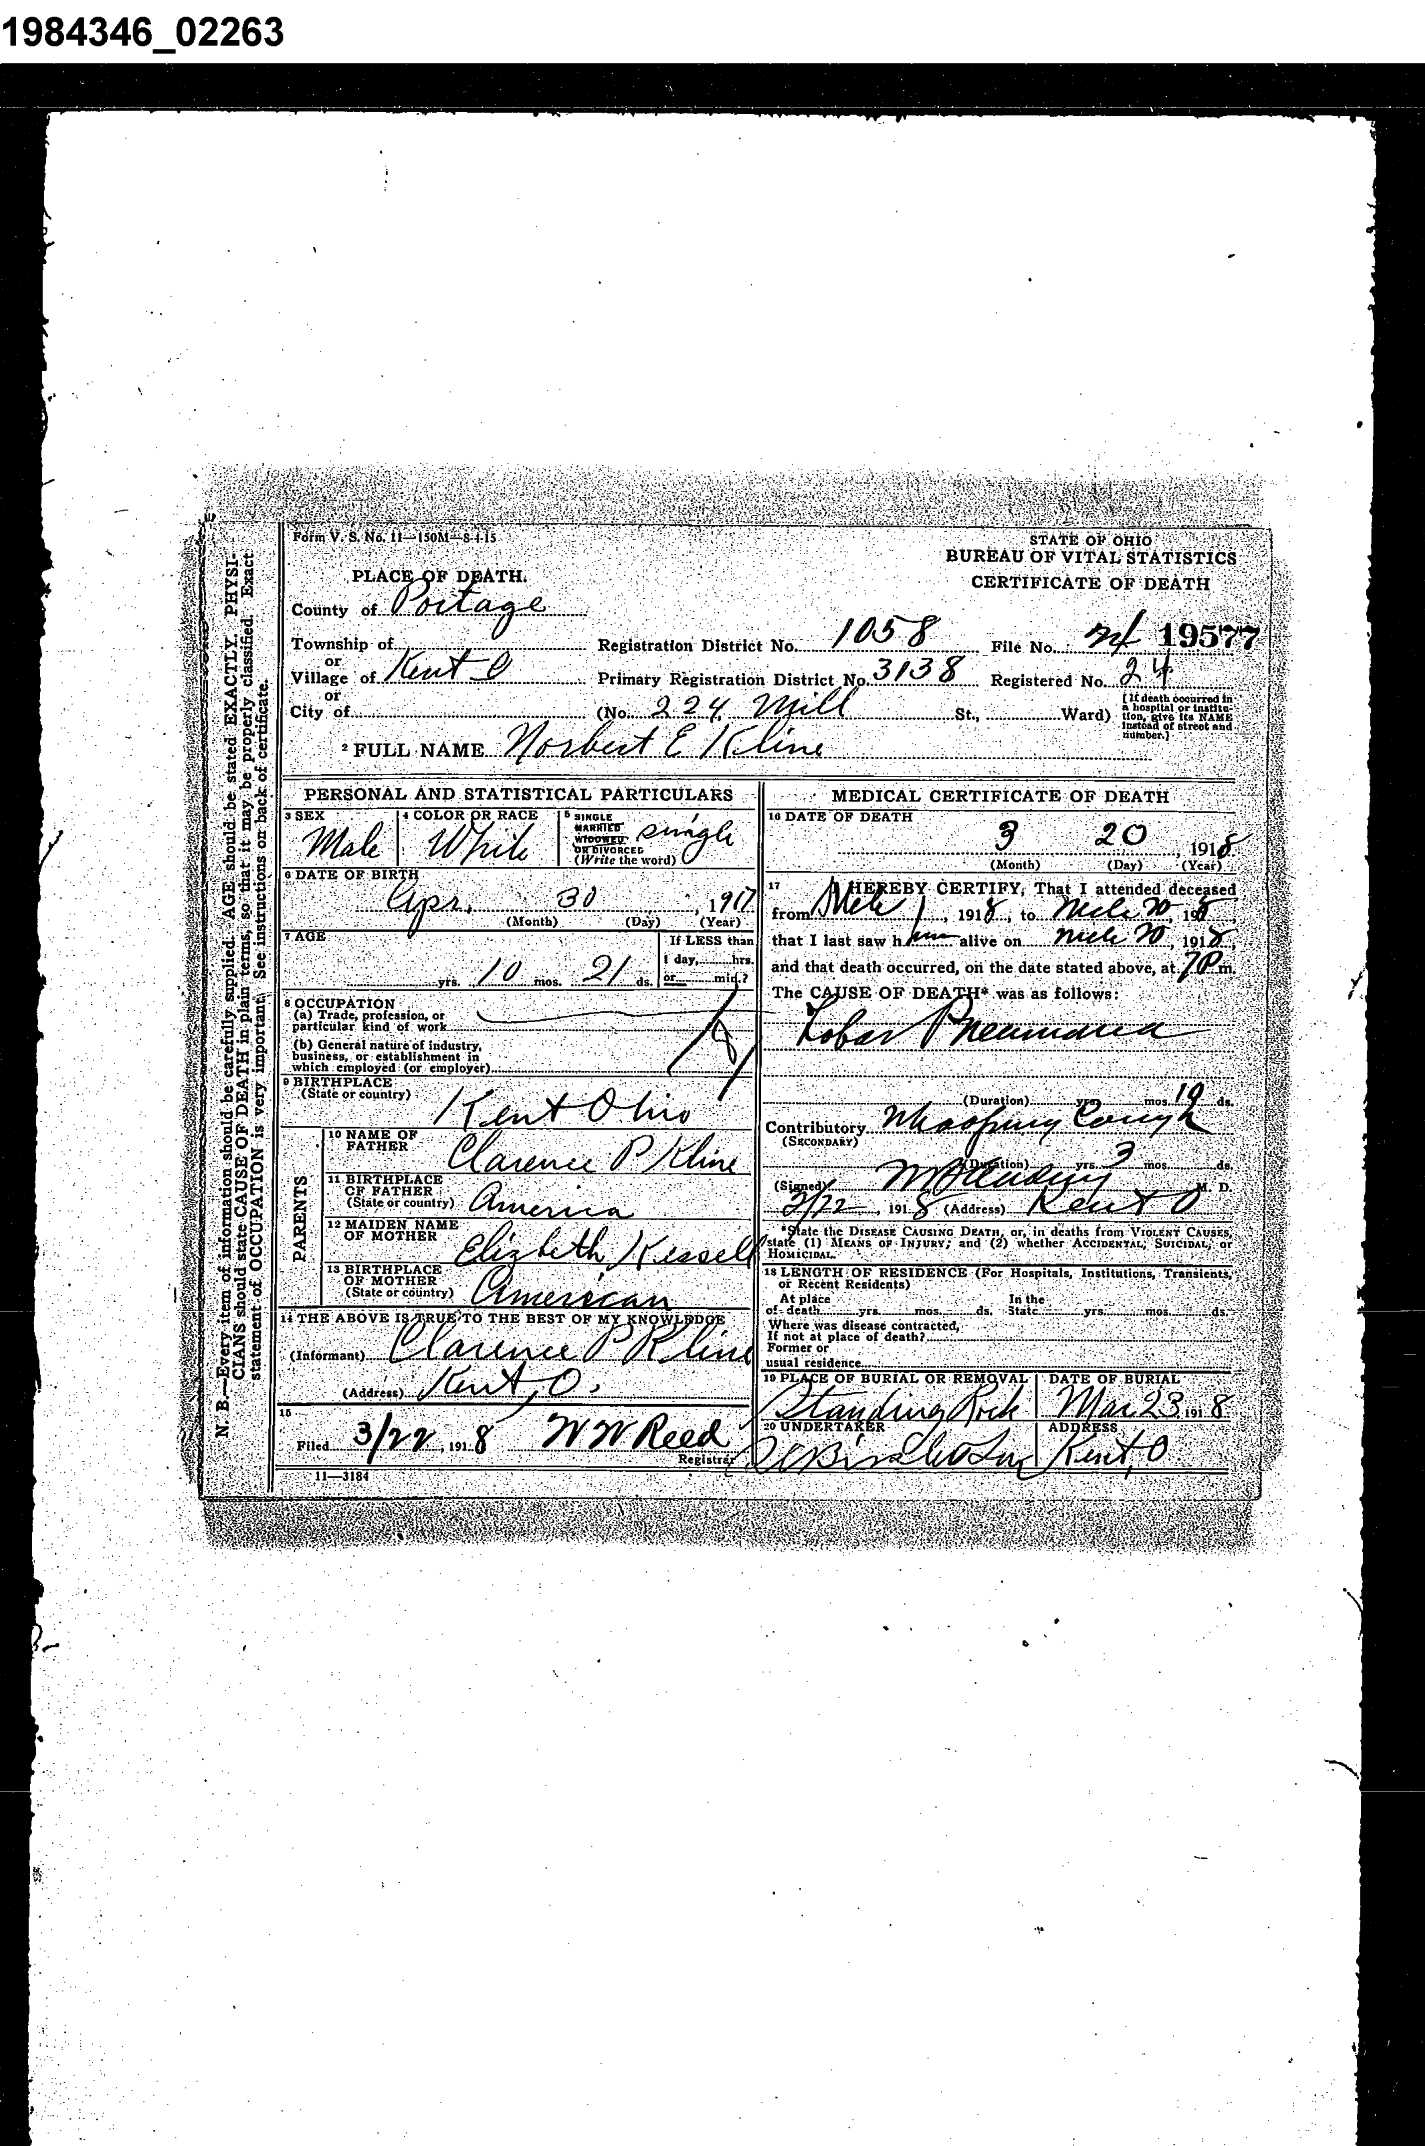 1984346_02263
Form V. S. No. 11—150M—8-4-15
STATE OF OHIO
BUREAU OF VITAL STATISTICS
CERTIFICATE OF DEATH
PLACE OF DEATH.
County of Portage
Township of
Registration District No. 1058
File No. 19577
or
Village of Kent O
Primary Registration District No. 3138
Registered No. 24
or
City of
(No. 224 Mill St., Ward)
(If death occurred in a hospital or institution, give its NAME instead of street and number.)
2 FULL NAME Norbert E Kline
PERSONAL AND STATISTICAL PARTICULARS
3 SEX
Male
4 COLOR OR RACE
White
5 SINGLE
MARRIED
WIDOWED
OR DIVORCED
(Write the word)
single
6 DATE OF BIRTH
Apr. 30, 1917
(Month) (Day) (Year)
7 AGE
yrs. 10 mos. 21 ds.
If LESS than
1 day, hrs.
or min.?
8 OCCUPATION
(a) Trade, profession, or
particular kind of work
(b) General nature of industry,
business, or establishment in
which employed (or employer)
9 BIRTHPLACE
(State or country)
Kent Ohio
PARENTS
10 NAME OF
FATHER
Clarence P Kline
11 BIRTHPLACE
OF FATHER
(State or country)
America
12 MAIDEN NAME
OF MOTHER
Elizbeth Kessell
13 BIRTHPLACE
OF MOTHER
(State or country)
American
14 THE ABOVE IS TRUE TO THE BEST OF MY KNOWLEDGE
(Informant) Clarence P Kline
(Address) Kent, O.
15
Filed 3/22, 1918 W W Reed
Registrar
11—3184
MEDICAL CERTIFICATE OF DEATH
16 DATE OF DEATH
3 20, 1918
(Month) (Day) (Year)
17 I HEREBY CERTIFY, That I attended deceased
from Mch 1, 1918, to Mch 20, 1918,
that I last saw him alive on Mch 20, 1918,
and that death occurred, on the date stated above, at 7 P m.
The CAUSE OF DEATH* was as follows:
Lobar Pneumonia
(Duration) yrs. mos. 19 ds.
Contributory Whooping Cough
(SECONDARY)
(Duration) yrs. 3 mos. ds.
(Signed) M. D.
3/22, 1918 (Address) Kent O
*State the DISEASE CAUSING DEATH, or, in deaths from VIOLENT CAUSES,
state (1) MEANS OF INJURY; and (2) whether ACCIDENTAL, SUICIDAL, or
HOMICIDAL.
18 LENGTH OF RESIDENCE (For Hospitals, Institutions, Transients,
or Recent Residents)
At place
of death yrs. mos. ds.
In the
State yrs. mos. ds.
Where was disease contracted,
If not at place of death?
Former or
usual residence
19 PLACE OF BURIAL OR REMOVAL
Standing Rock
DATE OF BURIAL
Mar 23 1918
20 UNDERTAKER
ADDRESS
Kent, O
N. B.—Every item of information should be carefully supplied. AGE should be stated EXACTLY. PHYSI-
CIANS should state CAUSE OF DEATH in plain terms, so that it may be properly classified. Exact
statement of OCCUPATION is very important. See instructions on back of certificate.